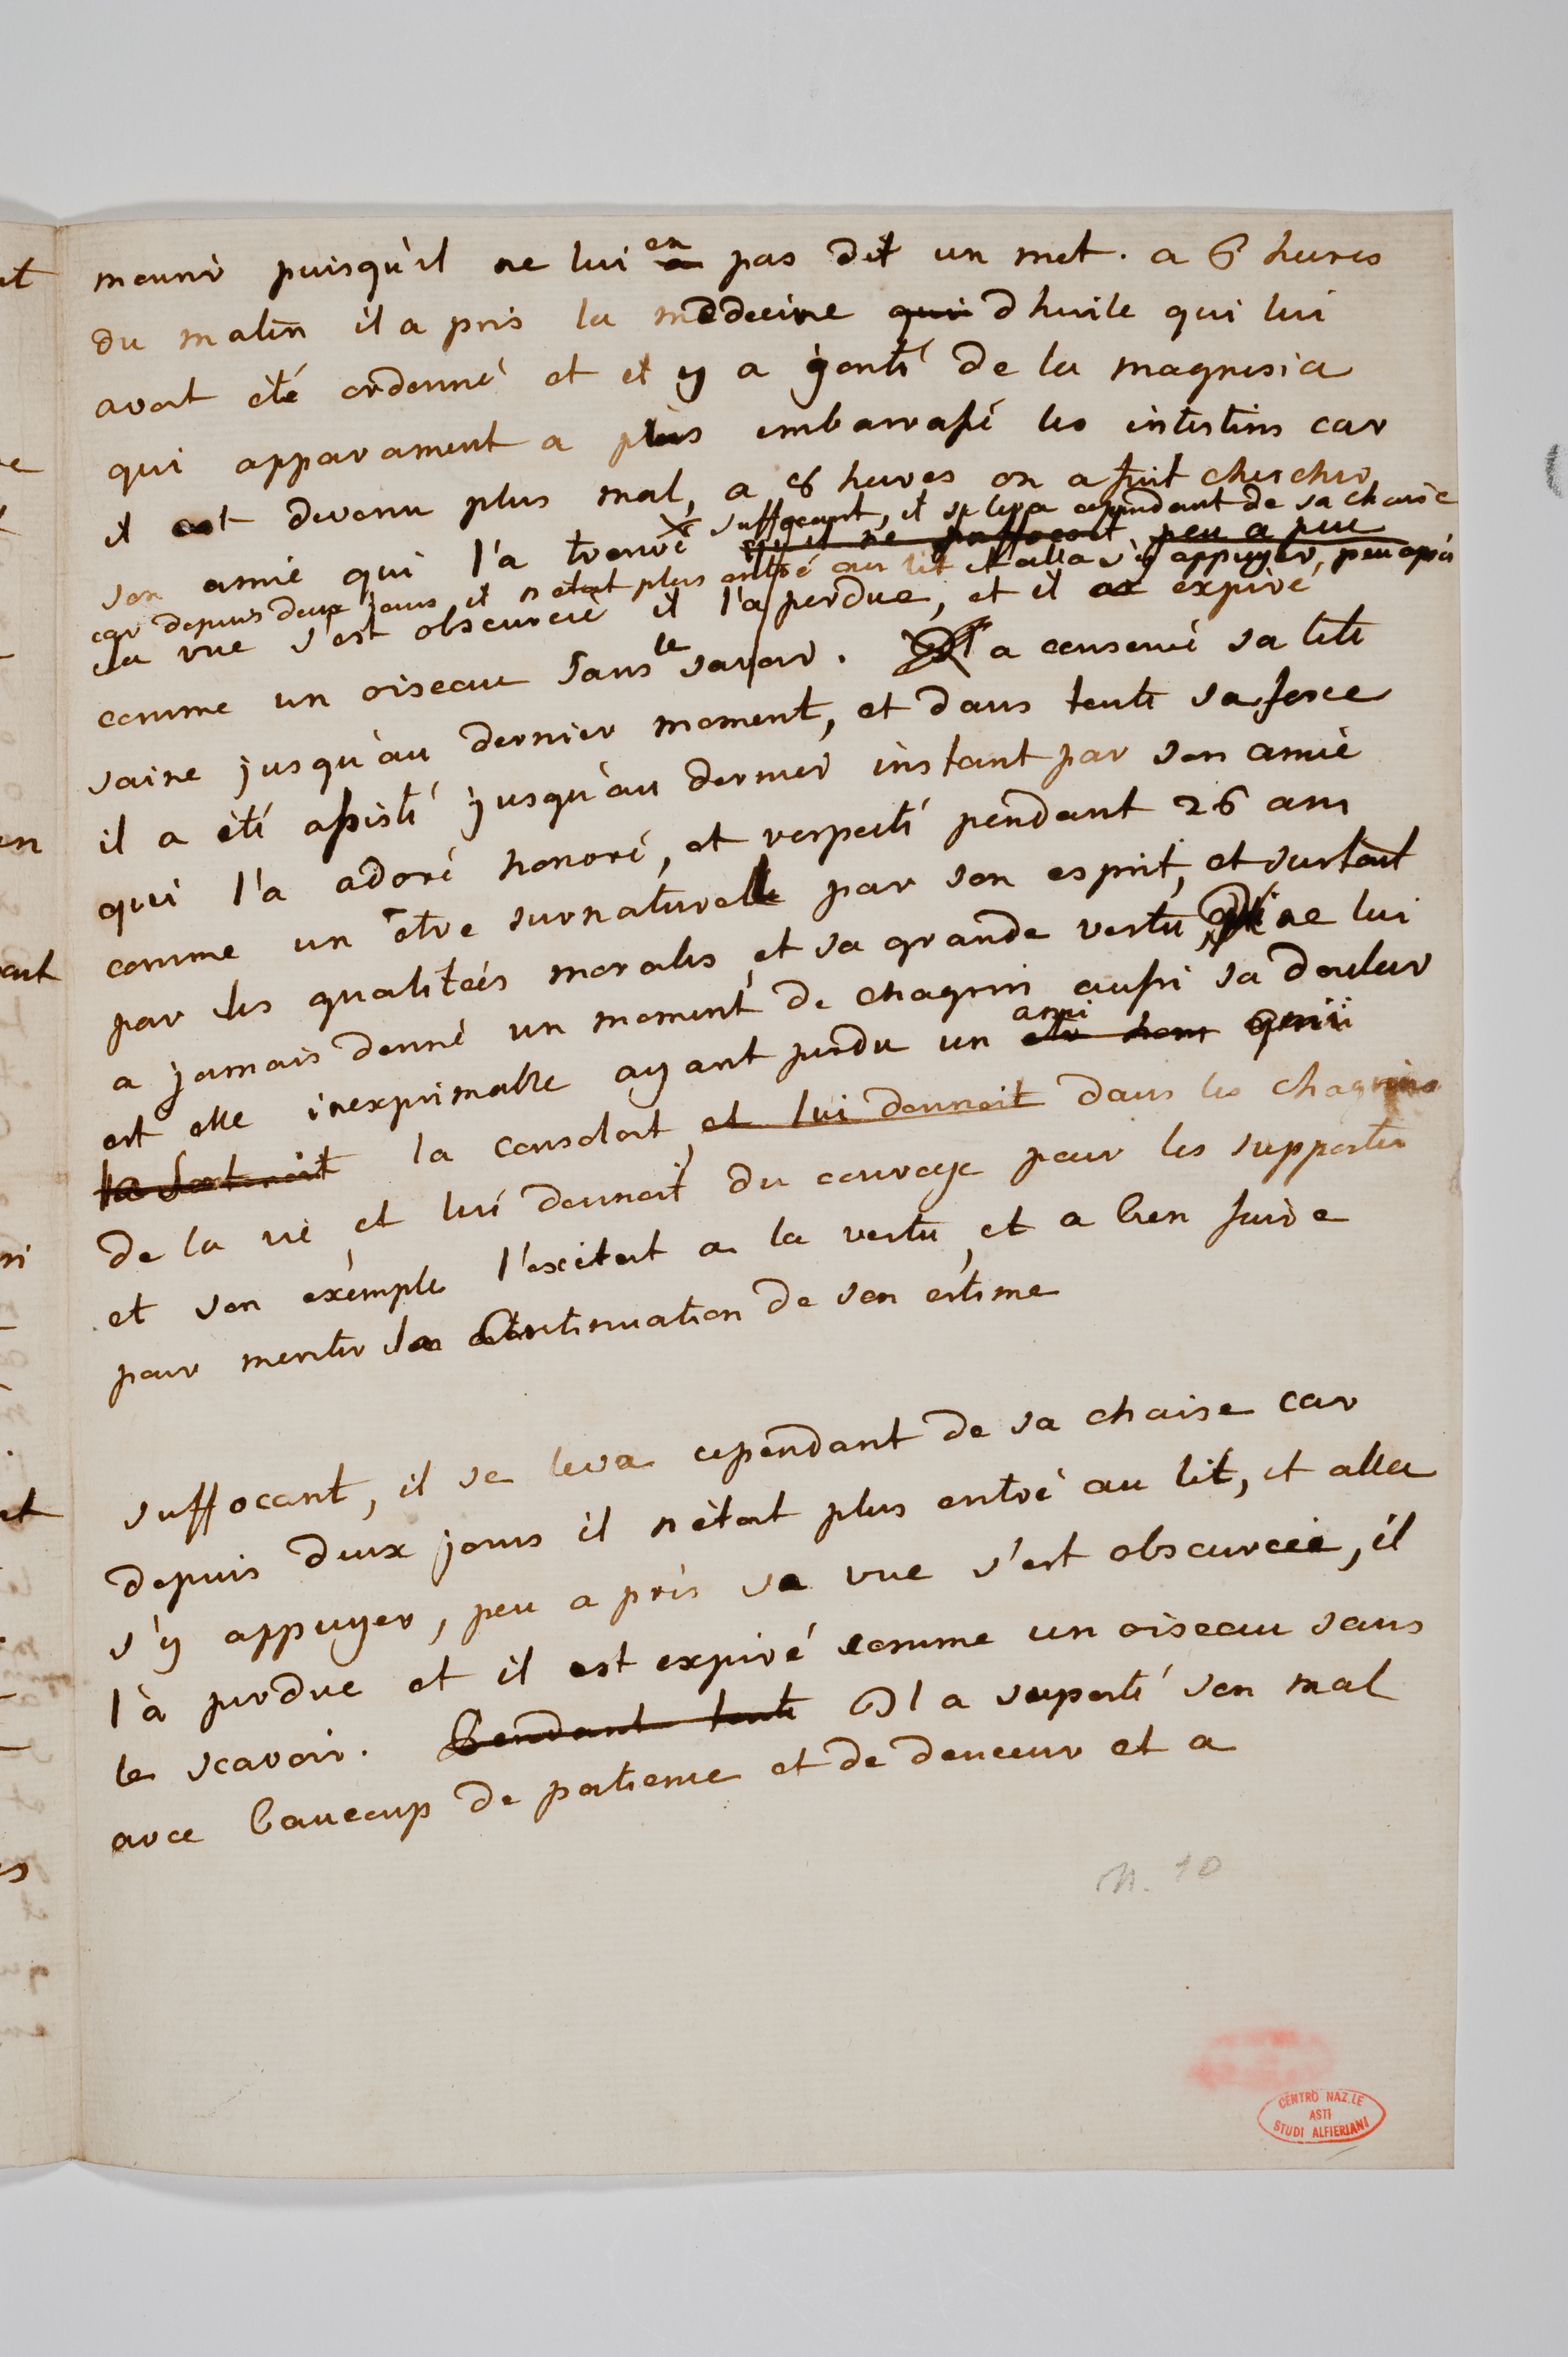 mourir puisqu'il ne lui en a pas dit un mot. a 6 heures
du matin il a pris la medecine qui d huile qui lui
avoit été ordonné et et y a jouté de la magnesia
qui apparament a plus embarassé les intestins car
il est devenu plus mal, a 8 heures on a fait chercher
son amie qui l'a trouvé suffocant, il se leva cependant de sa chaise
peu a peu
car depuis deux jours il n etoit plus entré au lit et alla s'y appuyer, peu après
sa vue s'est obscurcie il l'a perdue, et il est expiré
comme un oiseau sans le savoir. Il a conservé sa tete
saine jusqu'au dernier moment, et dans toute sa force
il a été assisté jusqu'au dernier instant par son amie
qui l'a adoré honoré, et respecté pendant 26 ans
comme un être surnaturelle par son esprit, et surtout
par les qualitées morales, et sa grande vertu, qui ne lui
a jamais donné un moment de chagrin aussi sa douleur
est elle inexprimable ayant perdu un ami qui
la soutenoit la consoloit, et lui donnoit dans les chagrins
de la vie et lui donnoit du courage pour les supporter
et son exemple l'excitoit a la vertu, et a bien faire
pour meriter la continuation de son estime
suffocant, il se leva cependant de sa chaise car
depuis deux jours il n'étoit plus entré au lit, et alla
s'y appuyer, peu a près sa vue s'est obscurcie, il
l'à perdue et il est expiré comme un oiseau sans
le scavoir. Pendant toute Il a suporté son mal
avec baucoup de patience et de douceur et a
N. 10
CENTRO NAZ.LE
ASTI
STUDI ALFIERIANI